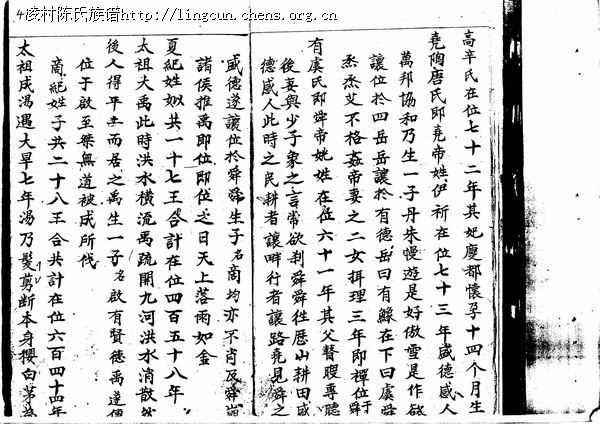 凌村陈氏族谱http://lingcun.chens.org.cn
高辛氏在位七十二年其妃慶都懷孕十四个月生
堯陶唐氏即堯帝姓伊祈在位七十三年盛德感人
萬邦協和乃生一子丹朱慢遊是好傲雪是作欲
讓位於四岳岳讓於有德岳曰有鰥在下曰虞舜
烝烝艾不格姦帝妻之二女珥理三年即禪位于
有虞氏即舜帝姚姓在位六十一年其父瞽瞍專聽
後妻與少子象之言常欲刹舜舜徃歷山耕田盛
德感人此時之民耕者讓畔行者讓路堯見舜之
盛德遂讓位於舜舜生子名商均亦不肖及舜崩
諸侯推禹即位即位之日天上落雨如金
夏紀姓姒共一十七王合計在位四百五十八年
太祖大禹此時洪水橫流禹疏開九河洪水消散然
後人得平土而居之禹生一子名啟有賢德禹遂傳
位于啟至桀無道被成所伐
商紀姓子共二十八王合共計在位六百四十四年
太祖成湯遇大旱七年湯乃髮剪斷本身纓白茅為